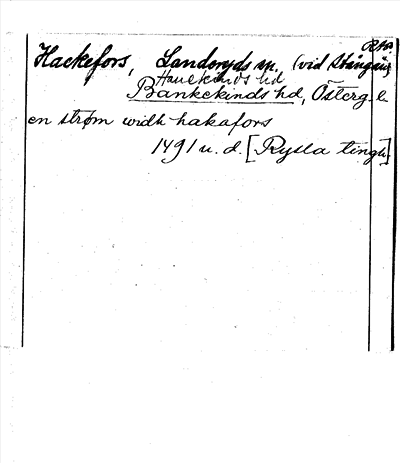 Hackefors, Landeryds sn. (vid Stångån)
Hanekinds hd
Bankekinds hd, Österg. l.
en strøm widh hakafors
1491 u. d. [Rysla tingh.]